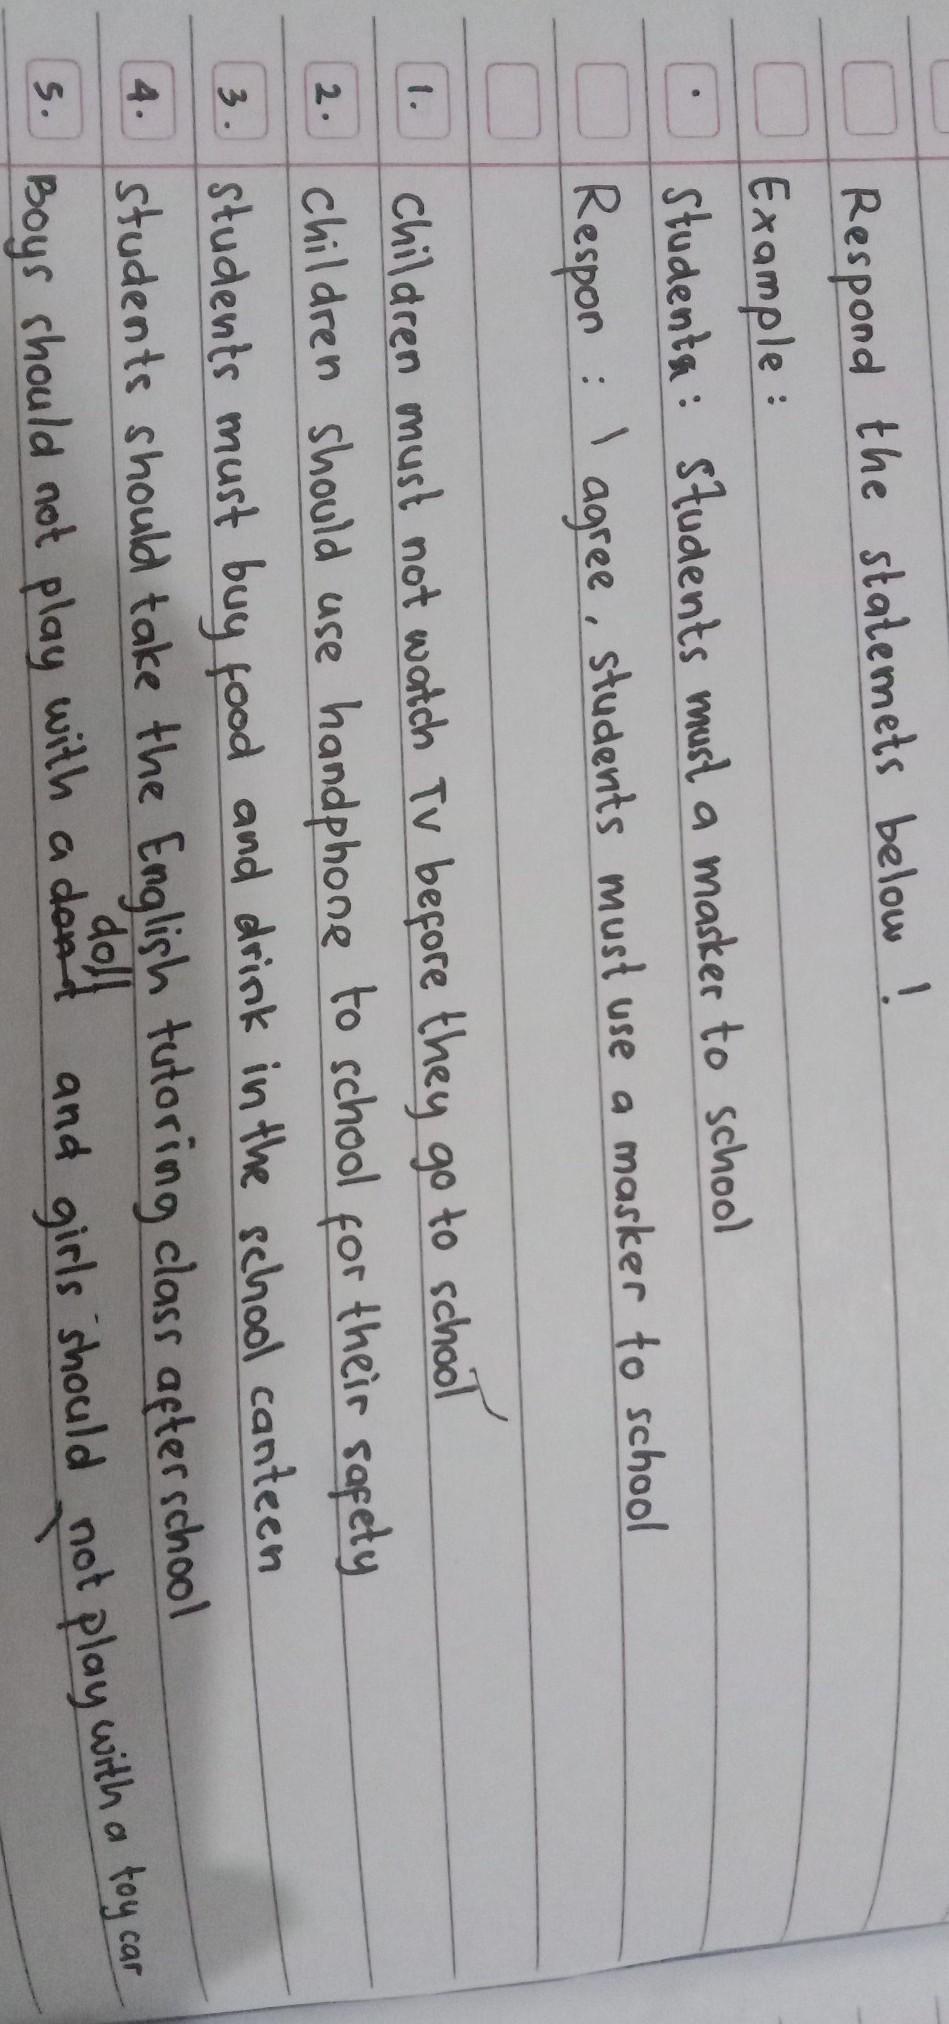 Respond the statemets below !
Example :
• Students : students must a masker to school
Respon : I agree, students must use a masker to school
1. Children must not watch TV before they go to school
2. Children should use handphone to school for their safety
3. Students must buy food and drink in the school canteen
4. Students should take the English tutoring class after school
5. Boys should not play with a doll and girls should not play with a toy car